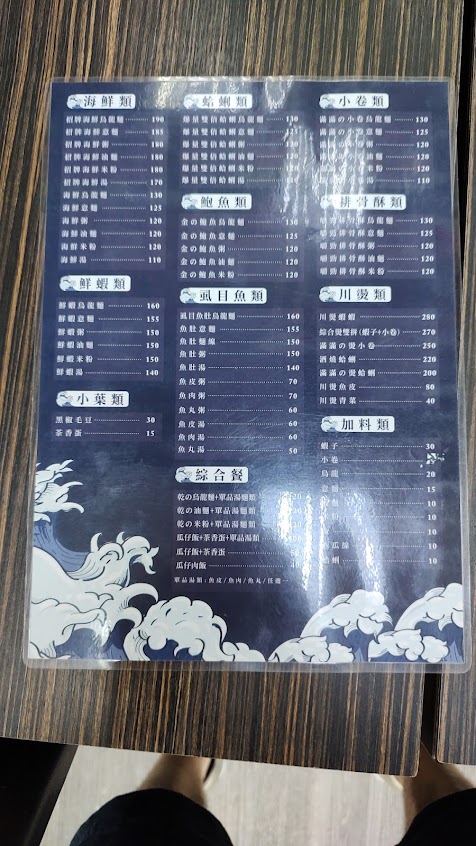 海鮮類
招牌海鮮烏龍麵 190
招牌海鮮意麵 185
招牌海鮮粥 180
招牌海鮮油麵 180
招牌海鮮米粉 180
招牌海鮮湯 170
海鮮烏龍麵 130
海鮮意麵 125
海鮮粥 120
海鮮油麵 120
海鮮米粉 120
海鮮湯 110
鮮蝦類
鮮蝦烏龍麵 160
鮮蝦意麵 155
鮮蝦粥 150
鮮蝦油麵 150
鮮蝦米粉 150
鮮蝦湯 140
小葉類
黑椒毛豆 30
茶香蛋 15
蛤蜊類
爆量雙倍蛤蜊烏龍麵 130
爆量雙倍蛤蜊意麵 125
爆量雙倍蛤蜊
爆量雙倍蛤蜊油麵
爆量雙倍蛤蜊米粉
爆量雙倍蛤蜊湯
鮑魚類
金の鮑魚烏龍麵 130
金の鮑魚意麵 125
金の鮑魚粥 120
金の鮑魚油麵 120
金の鮑魚米粉 120
虱目魚類
虱目魚肚烏龍麵 160
魚肚意麵 155
魚肚麵線 150
魚肚粥 150
魚肚湯 140
魚皮粥 70
魚肉粥 70
魚丸粥 60
魚皮湯 60
魚肉湯 60
魚丸湯 50
綜合餐
乾の烏龍麵+單品湯麵類
乾の油麵+單品湯麵類
乾の米粉+單品湯麵類
瓜仔飯+茶香蛋+單品湯類
瓜仔飯+茶香蛋
瓜仔肉飯
單品湯類:魚皮/魚肉/魚丸/任選一
小卷類
滿滿の小卷烏龍麵 130
滿滿の小卷意麵 125
滿滿の小卷粥 120
滿滿の小卷油麵 120
滿滿の小卷米粉 120
滿滿の小卷湯 110
排骨酥類
烏龍麵 130
排骨酥意麵 125
排骨酥粥 120
排骨酥油麵 120
排骨酥米粉 120
川燙類
川燙蝦蝦 280
綜合燙雙拼(蝦子+小卷) 270
滿滿の燙小卷 250
酒燒蛤蜊 220
滿滿の燙蛤蜊 200
川燙魚皮 80
川燙青菜 40
加料類
蝦子 30
小卷
烏龍 20
意麵 15
10
10
10
10